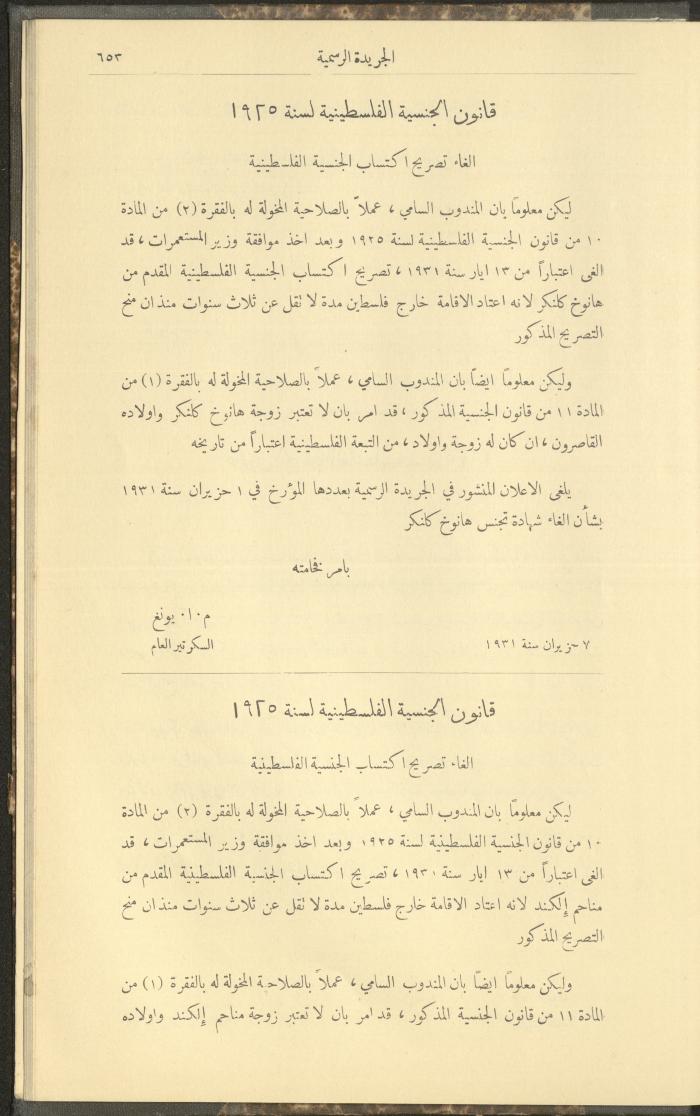 الجريدة الرسمية ٦٥٣
قانون الجنسية الفلسطينية لسنة ١٩٢٥
الغاء تصريح اكتساب الجنسية الفلسطينية
ليكن معلومًا بان المندوب السامي ، عملاً بالصلاحية المخولة له بالفقرة (٢) من المادة
١٠ من قانون الجنسية الفلسطينية لسنة ١٩٢٥ وبعد اخذ موافقة وزير المستعمرات ، قد
الغى اعتباراً من ١٣ ايار سنة ١٩٣١ ، تصريح اكتساب الجنسية الفلسطينية المقدم من
هانوخ كلنكر لانه اعتاد الاقامة خارج فلسطين مدة لا تقل عن ثلاث سنوات منذ ان منح
التصريح المذكور
وليكن معلومًا ايضًا بان المندوب السامي ، عملاً بالصلاحية المخولة له بالفقرة (١) من
المادة ١١ من قانون الجنسية المذكور ، قد امر بان لا تعتبر زوجة هانوخ كلنكر واولاده
القاصرون ، ان كان له زوجة واولاد ، من التبعة الفلسطينية اعتباراً من تاريخه
يلغى الاعلان المنشور في الجريدة الرسمية بعددها المؤرخ في ١ حزيران سنة ١٩٣١
بشأن الغاء شهادة تجنس هانوخ كلنكر
بامر فخامته
م ٠ ا ٠ يونغ
٧ حزيران سنة ١٩٣١ السكرتير العام
قانون الجنسية الفلسطينية لسنة ١٩٢٥
الغاء تصريح اكتساب الجنسية الفلسطينية
ليكن معلومًا بان المندوب السامي ، عملاً بالصلاحية المخولة له بالفقرة (٢) من المادة
١٠ من قانون الجنسية الفلسطينية لسنة ١٩٢٥ وبعد اخذ موافقة وزير المستعمرات ، قد
الغى اعتباراً من ١٣ ايار سنة ١٩٣١ ، تصريح اكتساب الجنسية الفلسطينية المقدم من
مناحم إلكند لانه اعتاد الاقامة خارج فلسطين مدة لا تقل عن ثلاث سنوات منذ ان منح
التصريح المذكور
وليكن معلومًا ايضًا بان المندوب السامي ، عملاً بالصلاحية المخولة له بالفقرة (١) من
المادة ١١ من قانون الجنسية المذكور ، قد امر بان لا تعتبر زوجة مناحم إلكند واولاده